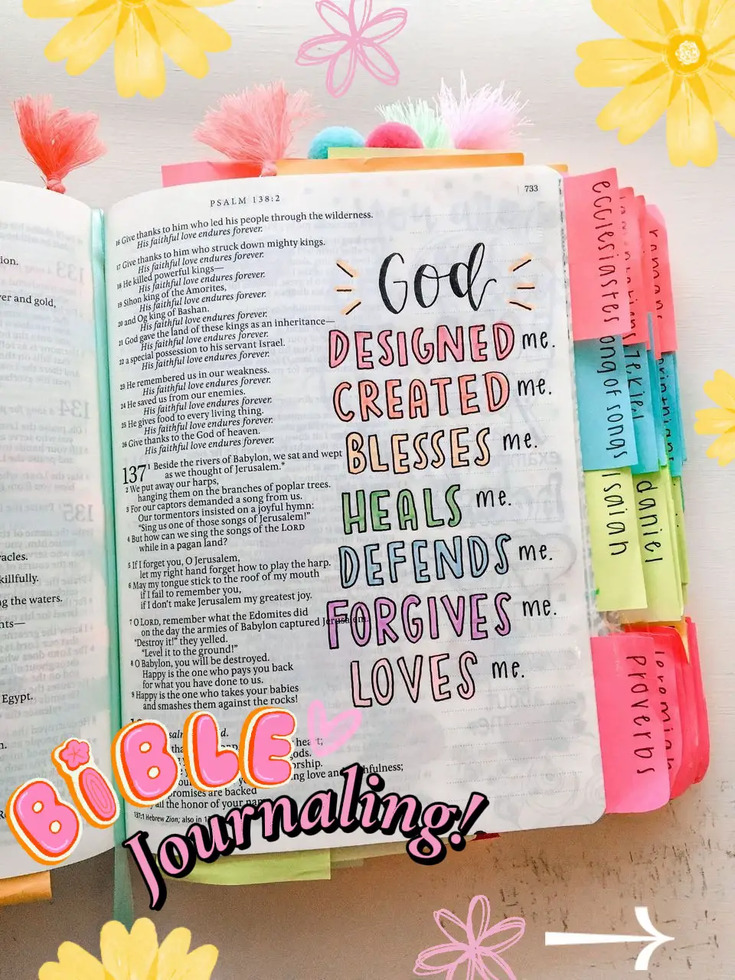 PSALM 138:2
733
16 Give thanks to him who led his people through the wilderness.
His faithful love endures forever.
17 Give thanks to him who struck down mighty kings.
His faithful love endures forever.
18 He killed powerful kings—
His faithful love endures forever.
19 Sihon king of the Amorites,
His faithful love endures forever.
20 and Og king of Bashan.
His faithful love endures forever.
21 God gave the land of these kings as an inheritance—
His faithful love endures forever.
22 a special possession to his servant Israel.
His faithful love endures forever.
23 He remembered us in our weakness.
His faithful love endures forever.
24 He saved us from our enemies.
His faithful love endures forever.
25 He gives food to every living thing.
His faithful love endures forever.
26 Give thanks to the God of heaven.
His faithful love endures forever.
137
1 Beside the rivers of Babylon, we sat and wept
as we thought of Jerusalem.*
2 We put away our harps,
hanging them on the branches of poplar trees.
3 For our captors demanded a song from us.
Our tormentors insisted on a joyful hymn:
"Sing us one of those songs of Jerusalem!"
4 But how can we sing the songs of the LORD
while in a pagan land?
5 If I forget you, O Jerusalem,
let my right hand forget how to play the harp.
6 May my tongue stick to the roof of my mouth
if I fail to remember you,
if I don't make Jerusalem my greatest joy.
7 O LORD, remember what the Edomites did
on the day the armies of Babylon captured Jerusalem.
"Destroy it!" they yelled.
"Level it to the ground!"
8 O Babylon, you will be destroyed.
Happy is the one who pays you back
for what you have done to us.
9 Happy is the one who takes your babies
and smashes them against the rocks!
promises are backed
all the honor of your name
137:1 Hebrew Zion; also in
God
DESIGNED me.
CREATED me.
BLESSES me.
HEALS me.
DEFENDS me.
FORGIVES me.
LOVES me.
ecclesiastes
romans
song of songs
isaiah
daniel
proverbs
jeremiah
ver and gold,
killfully.
ng the waters.
Egypt.
BiBLE
Journaling!